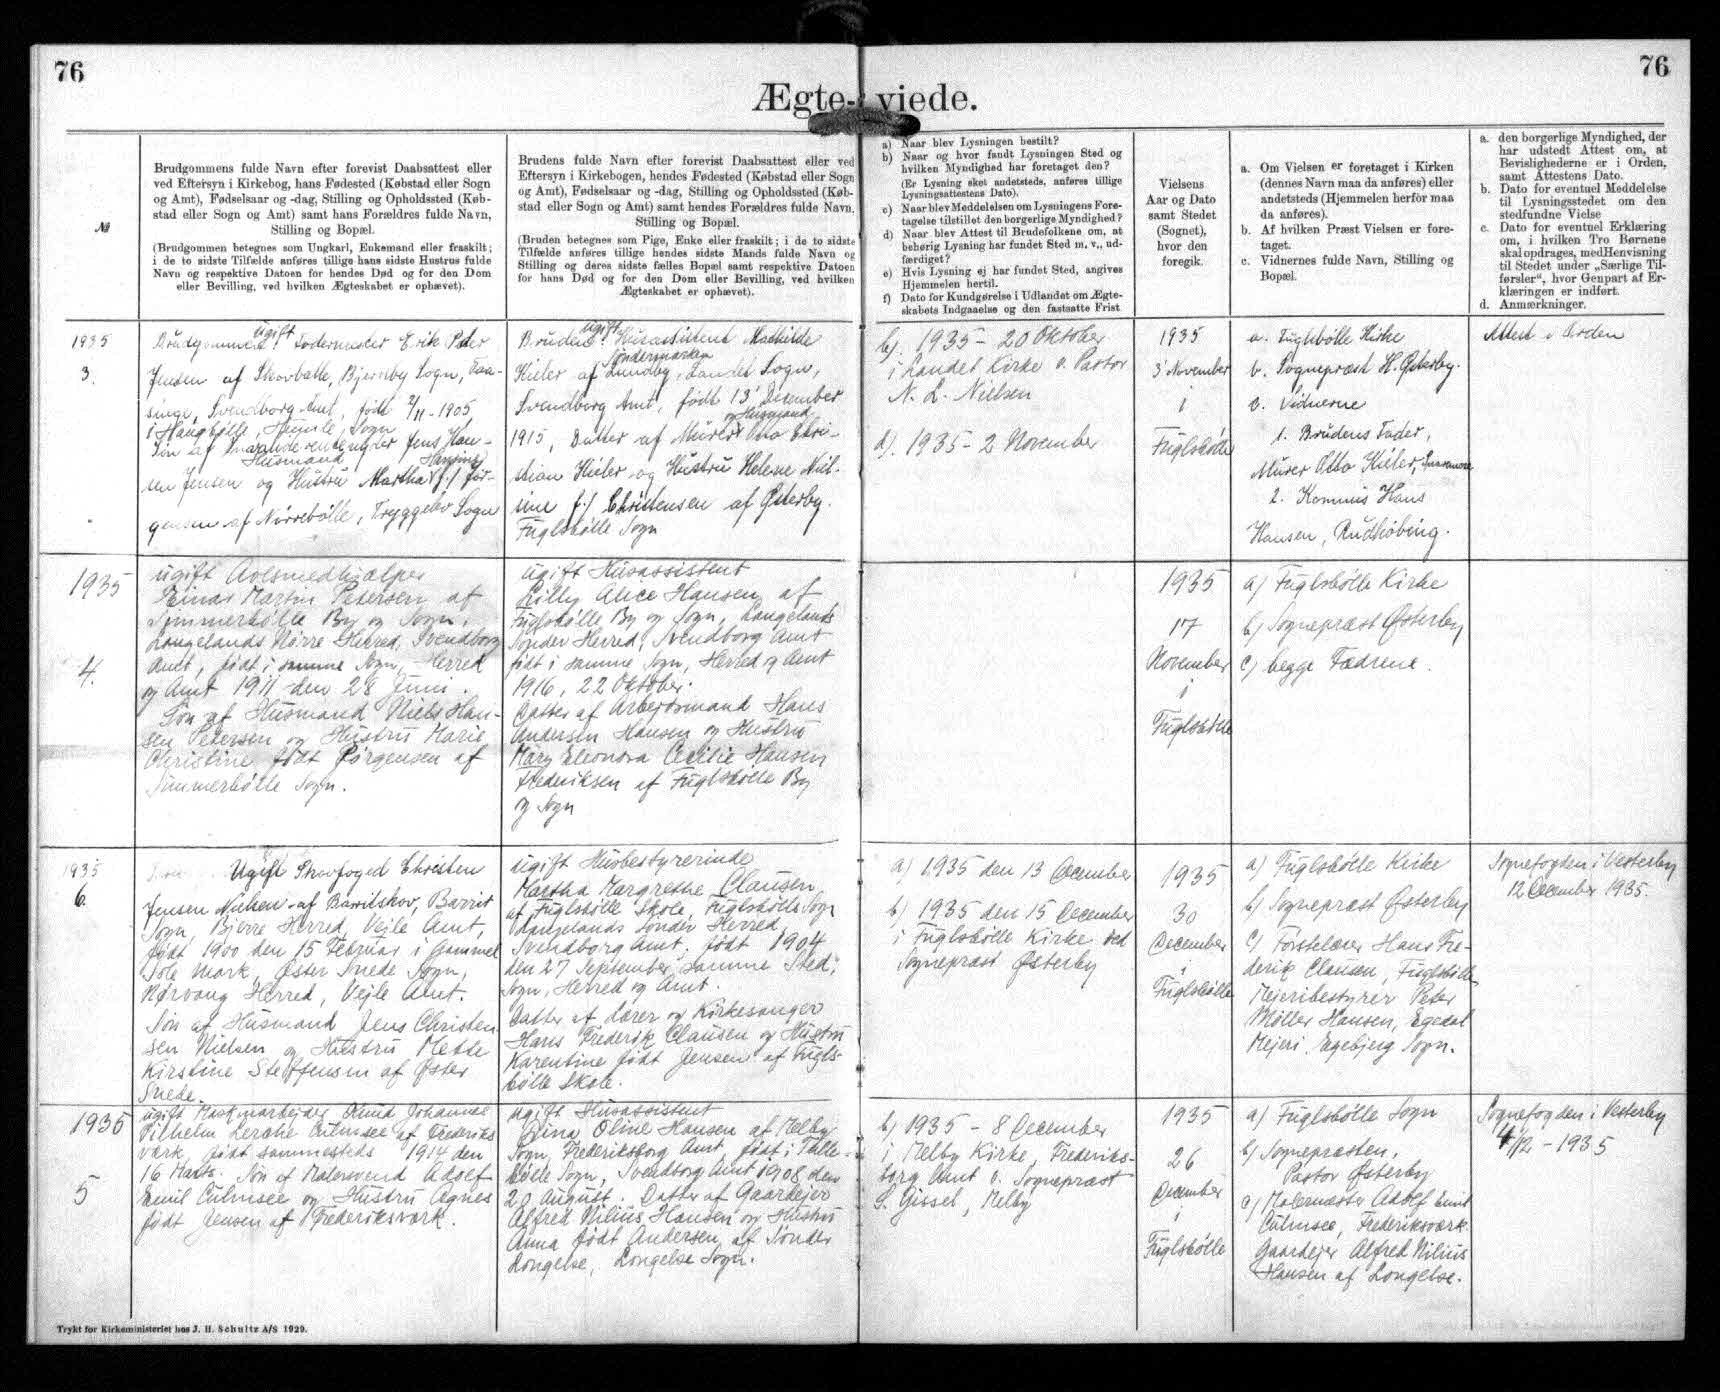 76
76
Ægte-viede.
№
Brudgommens fulde Navn efter forevist Daabsattest eller
ved Eftersyn i Kirkebog, hans Fødested (Købstad eller Sogn
og Amt), Fødselsaar og -dag, Stilling og Opholdssted (Køb-
stad eller Sogn og Amt) samt hans Forældres fulde Navn,
Stilling og Bopæl.
(Brudgommen betegnes som Ungkarl, Enkemand eller fraskilt;
i de to sidste Tilfælde anføres tillige hans sidste Hustrus fulde
Navn og respektive Datoen for hendes Død og for den Dom
eller Bevilling, ved hvilken Ægteskabet er ophævet).
Brudens fulde Navn efter forevist Daabsattest eller ved
Eftersyn i Kirkebogen, hendes Fødested (Købstad eller Sogn
og Amt), Fødselsaar og -dag, Stilling og Opholdssted (Køb-
stad eller Sogn og Amt) samt hendes Forældres fulde Navn,
Stilling og Bopæl.
(Bruden betegnes som Pige, Enke eller fraskilt; i de to sidste
Tilfælde anføres tillige hendes sidste Mands fulde Navn og
Stilling og deres sidste fælles Bopæl samt respektive Datoen
for hans Død og for den Dom eller Bevilling, ved hvilken
Ægteskabet er ophævet).
a) Naar blev Lysningen bestilt?
b) Naar og hvor fandt Lysningen Sted og
hvilken Myndighed har foretaget den?
(Er Lysning sket andetsteds, anføres tillige
Lysningsattestens Dato).
c) Naar blev Meddelelsen om Lysningens Fore-
tagelse tilstillet den borgerlige Myndighed?
d) Naar blev Attest til Brudefolkene om, at
behørig Lysning har fundet Sted m. v., ud-
færdiget?
e) Hvis Lysning ej har fundet Sted, angives
Hjemmelen hertil.
f) Dato for Kundgørelse i Udlandet om Ægte-
skabets Indgaaelse og den fastsatte Frist
Vielsens
Aar og Dato
samt Stedet
(Sognet),
hvor den
foregik.
a. Om Vielsen er foretaget i Kirken
(dennes Navn maa da anføres) eller
andetsteds (Hjemmelen herfor maa
da anføres).
b. Af hvilken Præst Vielsen er fore-
taget.
c. Vidnernes fulde Navn, Stilling og
Bopæl.
a. den borgerlige Myndighed, der
har udstedt Attest om, at
Bevislighederne er i Orden,
samt Attestens Dato.
b. Dato for eventuel Meddelelse
til Lysningsstedet om den
stedfundne Vielse
c. Dato for eventuel Erklæring
om, i hvilken Tro Børnene
skal opdrages, med Henvisning
til Stedet under „Særlige Til-
førsler", hvor Genpart af Er-
klæringen er indført.
d. Anmærkninger.
1935
3.
ugift
Brudgommen: Fodermester Erik Peter
Jensen af Skovballe, Bjernby Sogn, Taa-
singe, Svendborg Amt, født 2/11-1905
i Haugbølle, Humle Sogn
Søn af Jens Han-
Husmand
sen Jensen og Hustru Martha f.) Jør-
gensen af Nørrebølle, Tryggelev Sogn
ugift
Bruden: Husassistent Mathilde
Søndermarken
Kieler af Lundby, Landet Sogn,
Svendborg Amt, født 13 December
og Husmand
1915, Datter af Murer Otto Chri-
stian Kieler og Hustru Helene Niel-
sine f.) Christensen af Østerby.
Fuglsbølle Sogn
b). 1935 - 20 Oktober
i Landet Kirke v. Pastor
N. L. Nielsen
d). 1935 - 2 November
1935
3' November
i
Fuglsbølle
a. Fuglsbølle Kirke
b. Sognepræst H. Østerby.
c. Vidnerne
1. Brudens Fader,
Murer Otto Kieler,
2. Kommis Hans
Hansen, Rudkøbing.
Attest i Orden
1935
4.
ugift Avlsmedhjælper
Einar Martin Petersen af
Simmerbølle By og Sogn,
Langelands Nørre Herred, Svendborg
Amt, født i samme Sogn, Herred
og Amt 1911 den 28 Juni.
Søn af Husmand Niels Han-
sen Petersen og Hustru Marie
Christine født Jørgensen af
Simmerbølle Sogn.
ugift Husassistent
Lilly Alice Hansen af
Fuglsbølle By og Sogn, Langelands
Sønder Herred, Svendborg Amt
født i samme Sogn, Herred og Amt
1916, 22 Oktober.
Datter af Arbejdsmand Hans
Andersen Hansen og Hustru
Mary Eleonora Cecilie Hansen
Frederiksen af Fuglsbølle By
og Sogn
1935
17
November
i
Fuglsbølle
a) Fuglsbølle Kirke
b) Sognepræst Østerby
c) begge Fædrene.
1935
6.
Ugift Skovfoged Christen
Jensen Nielsen af Barritskov, Barrit
Sogn, Bjerre Herred, Vejle Amt,
født 1900 den 15 Februar i Gammel
Sole Mark, Øster Snede Sogn,
Nørvang Herred, Vejle Amt.
Søn af Husmand Jens Christen
sen Nielsen og Hustru Mette
Kirstine Steffensen af Øster
Snede.
ugift Husbestyrerinde
Martha Margrethe Clausen
af Fuglsbølle Skole, Fuglsbølle Sogn
Langelands Sønder Herred,
Svendborg Amt, født 1904
den 27 September, samme Sted,
Sogn, Herred og Amt.
Datter af Lærer og Kirkesanger
Hans Frederik Clausen og Hustru
Karentine født Jensen af Fugls-
bølle Skole.
a) 1935 den 13 December
b) 1935 den 15 December
i Fuglsbølle Kirke ved
Sognepræst Østerby
1935
30
December
i
Fuglsbølle
a) Fuglsbølle Kirke
b) Sognepræst Østerby
c) Førstelærer Hans Fre-
derik Clausen, Fuglsbølle
Mejeribestyrer Peter
Møller Hansen, Egedal
Mejeri, Egebjerg Sogn.
Sognefogden i Vesterby
12 December 1935.
1935
5
ugift Maskinarbejder Knud Johannes
Vilhelm Lerche Culmsee af Frederiks
værk, født sammesteds 1914 den
16 Marts. Søn af Malersvend Adolf
Emil Culmsee og Hustru Agnes
født Jensen af Frederiksværk.
ugift Husassistent
Oline Hansen af Melby
Sogn, Frederiksborg Amt, født i Tulle-
bølle Sogn, Svendborg Amt 1908 den
20 August. Datter af Gaardejer
Alfred Nilius Hansen og Hustru
Anna født Andersen af Sønder
Longelse, Longelse Sogn.
b) 1935 - 8 December
i Melby Kirke, Frederiks-
borg Amt v. Sognepræst
S. Gissel, Melby
1935
26
December
i
Fuglsbølle
a) Fuglsbølle Sogn
b) Sognepræsten,
Pastor Østerby
c) Malermester Adolf Emil
Culmsee, Frederiksværk.
Gaardejer Alfred Nilius
Hansen af Longelse.
Sognefogden i Vesterby
4/12 - 1935
Trykt for Kirkeministeriet hos J. H. Schultz A/S 1929.